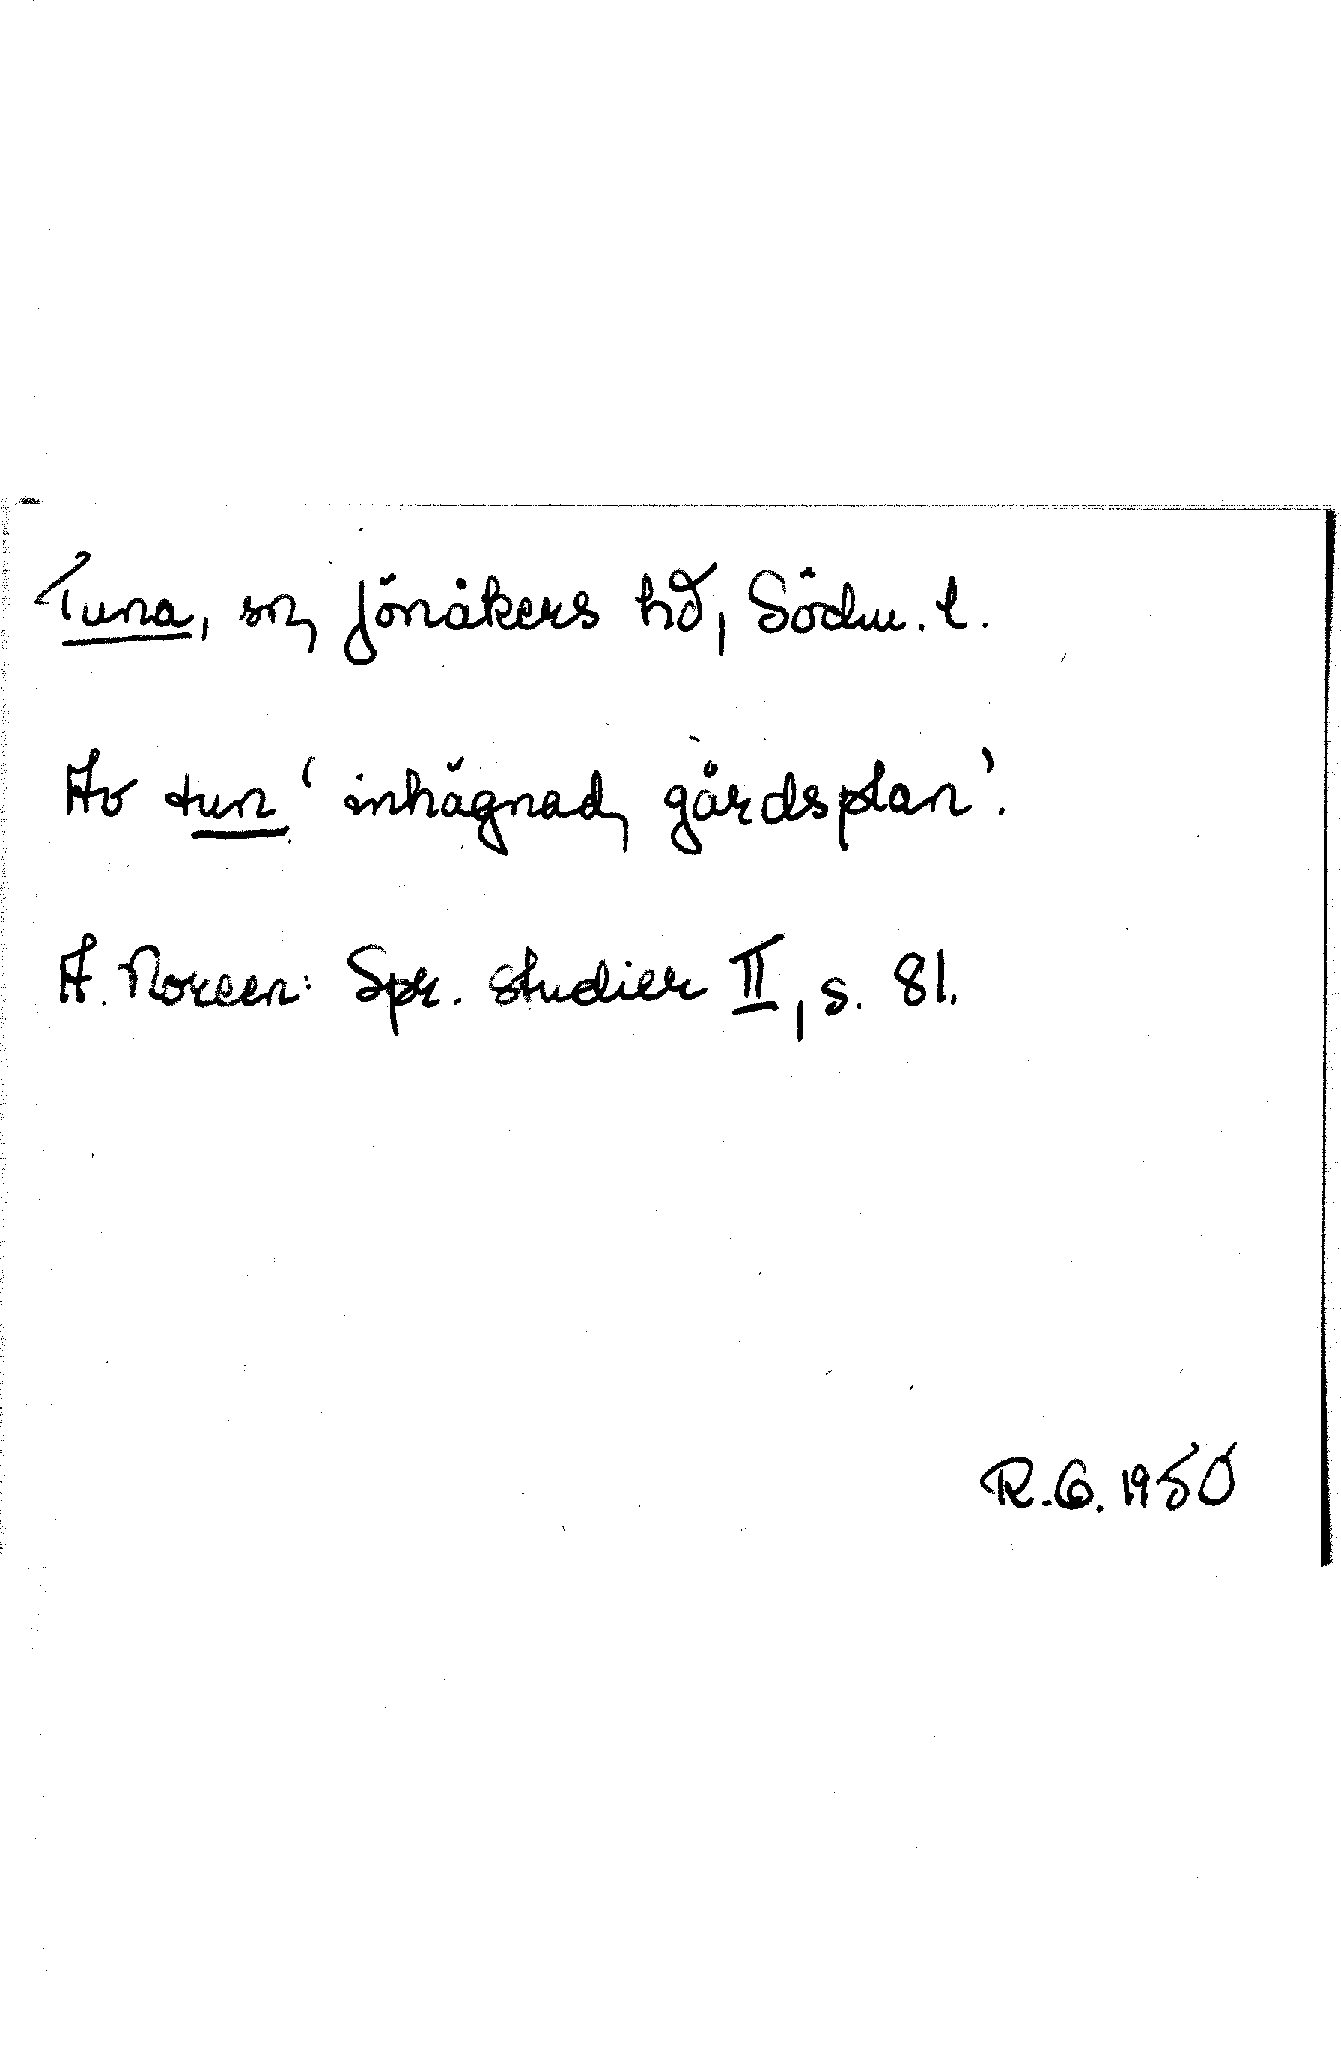 Tuna, sn, Jönåkers hd, Södm. l.
Av tun 'inhägnad, gårdsplan'.
A. Noreen: Spr. studier II, s. 81.
R.G. 1950